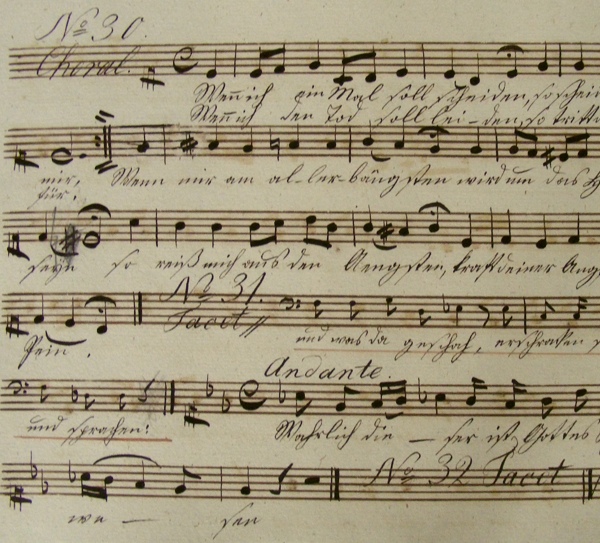 No 30.
Choral.
Wenn ich ein Mal soll scheiden, so scheid
Wenn ich den Tod soll lei-den, so tritt
mir, Wenn mir am al-ler-bängsten wird um das H
für.
seyn so reiß mich aus den Aengsten, kraft deiner Ang
Pein.
No 31.
Tacet
und was da geschah, erschracken s
und sprachen:
Andante.
Wahrlich die — ser ist Gottes S
we — sen
No 32 Tacet